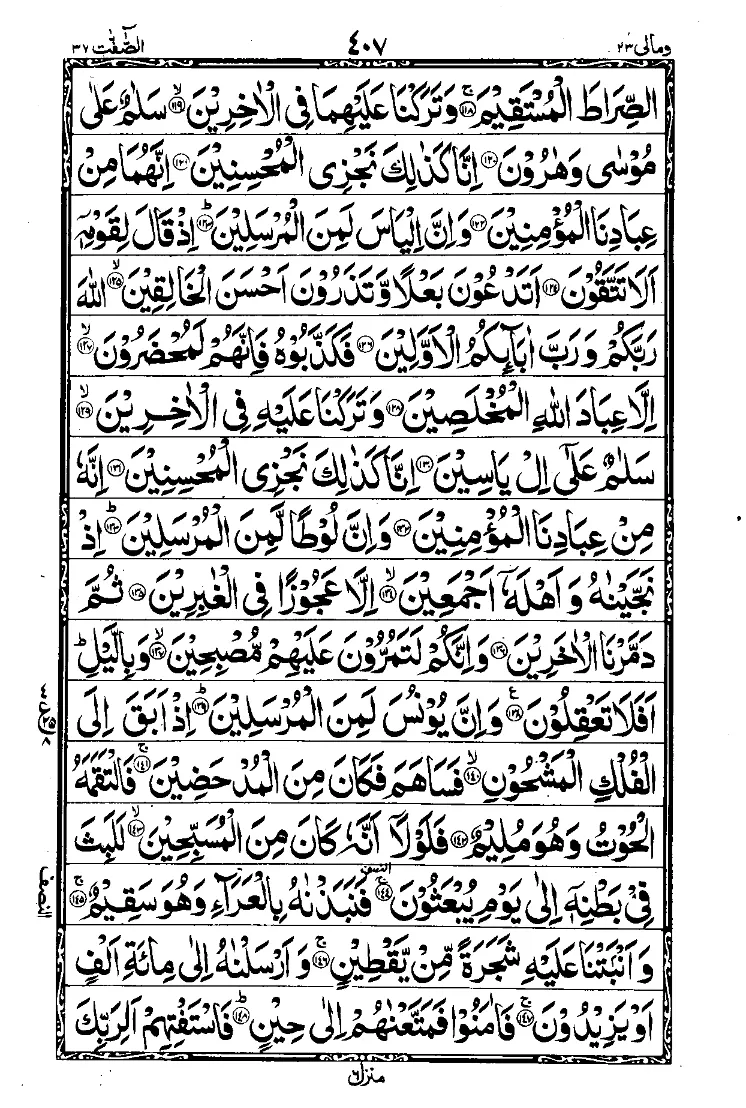 الصّٰٓفّٰت ٣٧ ٤٠٧ ومالی ٢٣
الصِّرَاطَ الْمُسْتَقِيْمَ ۚ‏﴿۱۱۸﴾ وَتَرَكْنَا عَلَيْهِمَا فِی الْاٰخِرِيْنَ ۙ‏﴿۱۱۹﴾ سَلٰمٌ عَلٰی
مُوْسٰی وَهٰرُوْنَ ﴿۱۲۰﴾ اِنَّا كَذٰلِكَ نَجْزِی الْمُحْسِنِيْنَ ﴿۱۲۱﴾ اِنَّهُمَا مِنْ
عِبَادِنَا الْمُؤْمِنِيْنَ ﴿۱۲۲﴾ وَاِنَّ اِلْيَاسَ لَمِنَ الْمُرْسَلِيْنَ ؕ‏﴿۱۲۳﴾ اِذْ قَالَ لِقَوْمِهٖۤ
اَلَا تَتَّقُوْنَ ﴿۱۲۴﴾ اَتَدْعُوْنَ بَعْلًا وَّتَذَرُوْنَ اَحْسَنَ الْخَالِقِيْنَ ۙ‏﴿۱۲۵﴾ اللّٰهَ
رَبَّكُمْ وَرَبَّ اٰبَآىِٕكُمُ الْاَوَّلِيْنَ ﴿۱۲۶﴾ فَكَذَّبُوْهُ فَاِنَّهُمْ لَمُحْضَرُوْنَ ۙ‏﴿۱۲۷﴾
اِلَّا عِبَادَ اللّٰهِ الْمُخْلَصِيْنَ ﴿۱۲۸﴾ وَتَرَكْنَا عَلَيْهِ فِی الْاٰخِرِيْنَ ۙ‏﴿۱۲۹﴾
سَلٰمٌ عَلٰۤی اِلْ يَاسِيْنَ ﴿۱۳۰﴾ اِنَّا كَذٰلِكَ نَجْزِی الْمُحْسِنِيْنَ ﴿۱۳۱﴾ اِنَّهٗ
مِنْ عِبَادِنَا الْمُؤْمِنِيْنَ ﴿۱۳۲﴾ وَاِنَّ لُوْطًا لَّمِنَ الْمُرْسَلِيْنَ ؕ‏﴿۱۳۳﴾ اِذْ
نَجَّيْنٰهُ وَاَهْلَهٗۤ اَجْمَعِيْنَ ۙ‏﴿۱۳۴﴾ اِلَّا عَجُوْزًا فِی الْغٰبِرِيْنَ ﴿۱۳۵﴾ ثُمَّ
دَمَّرْنَا الْاٰخَرِيْنَ ﴿۱۳۶﴾ وَاِنَّكُمْ لَتَمُرُّوْنَ عَلَيْهِمْ مُّصْبِحِيْنَ ۙ‏﴿۱۳۷﴾ وَبِالَّيْلِ ؕ
اَفَلَا تَعْقِلُوْنَ ‏﴿۱۳۸﴾ ع وَاِنَّ يُوْنُسَ لَمِنَ الْمُرْسَلِيْنَ ؕ‏﴿۱۳۹﴾ اِذْ اَبَقَ اِلَی
الْفُلْكِ الْمَشْحُوْنِ ۙ‏﴿۱۴۰﴾ فَسَاهَمَ فَكَانَ مِنَ الْمُدْحَضِيْنَ ۚ‏﴿۱۴۱﴾ فَالْتَقَمَهُ
الْحُوْتُ وَهُوَ مُلِيْمٌ ﴿۱۴۲﴾ فَلَوْلَاۤ اَنَّهٗ كَانَ مِنَ الْمُسَبِّحِيْنَ ۙ‏﴿۱۴۳﴾ لَلَبِثَ
فِیْ بَطْنِهٖۤ اِلٰی يَوْمِ يُبْعَثُوْنَ ۚ‏﴿۱۴۴﴾ فَنَبَذْنٰهُ بِالْعَرَآءِ وَهُوَ سَقِيْمٌ ۚ‏﴿۱۴۵﴾
النصف
وَاَنْۢبَتْنَا عَلَيْهِ شَجَرَةً مِّنْ يَّقْطِيْنٍ ۚ‏﴿۱۴۶﴾ وَاَرْسَلْنٰهُ اِلٰی مِائَةِ اَلْفٍ
اَوْ يَزِيْدُوْنَ ۚ‏﴿۱۴۷﴾ فَاٰمَنُوْا فَمَتَّعْنٰهُمْ اِلٰی حِيْنٍ ؕ‏﴿۱۴۸﴾ فَاسْتَفْتِهِمْ اَلِرَبِّكَ
منزل ٦